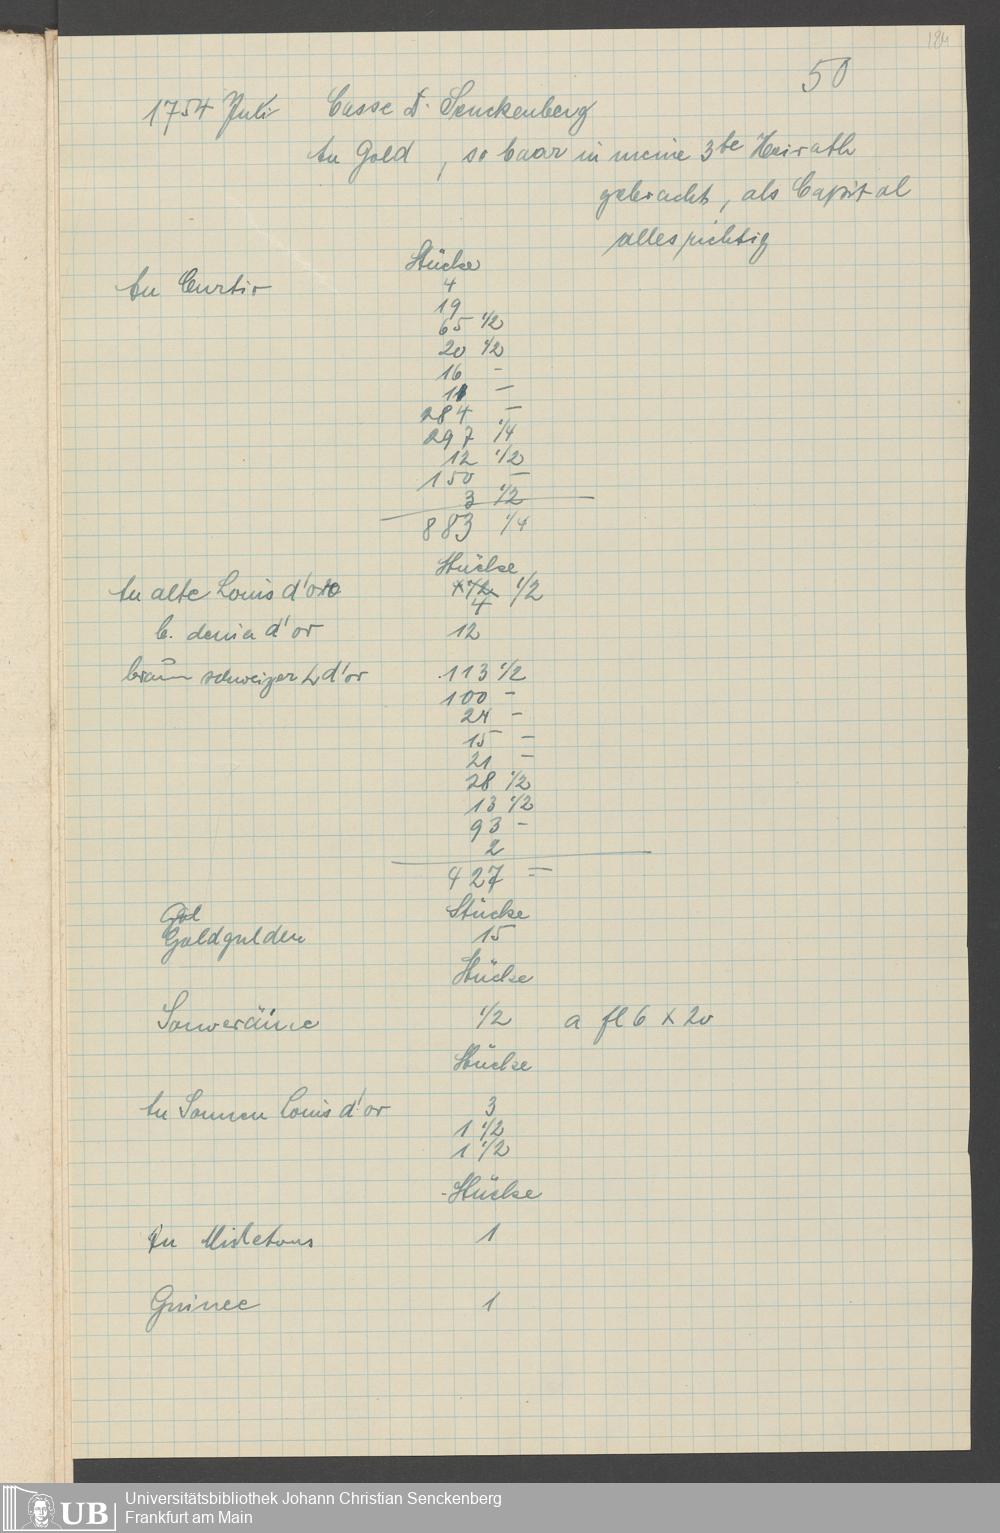 184
50
1754 Juli Casse D. Senckenberg
An Gold, so baar in meine 3te Heirath
gebracht, als Capital
alles richtig
Stücke
An Curtio 4
19
65 1/2
20 1/2
16 –
11 –
284 –
297 1/4
12 1/2
150 –
3 1/2
883 1/4
Stücke
An alte Louis d'or 4 1/2
b. d'or 12
braunschweiger L d'or 113 1/2
100 –
24 –
15 –
21 –
28 1/2
13 1/2
93 –
2
427 =
Gol Stücke
Goldgulden 15
Stücke
Souveräine 1/2 a fl 6 x 20
Stücke
An Sonnen Louis d'or 3
1 1/2
1 1/2
Stücke
An 1
Guinee 1
UB Universitätsbibliothek Johann Christian Senckenberg
Frankfurt am Main